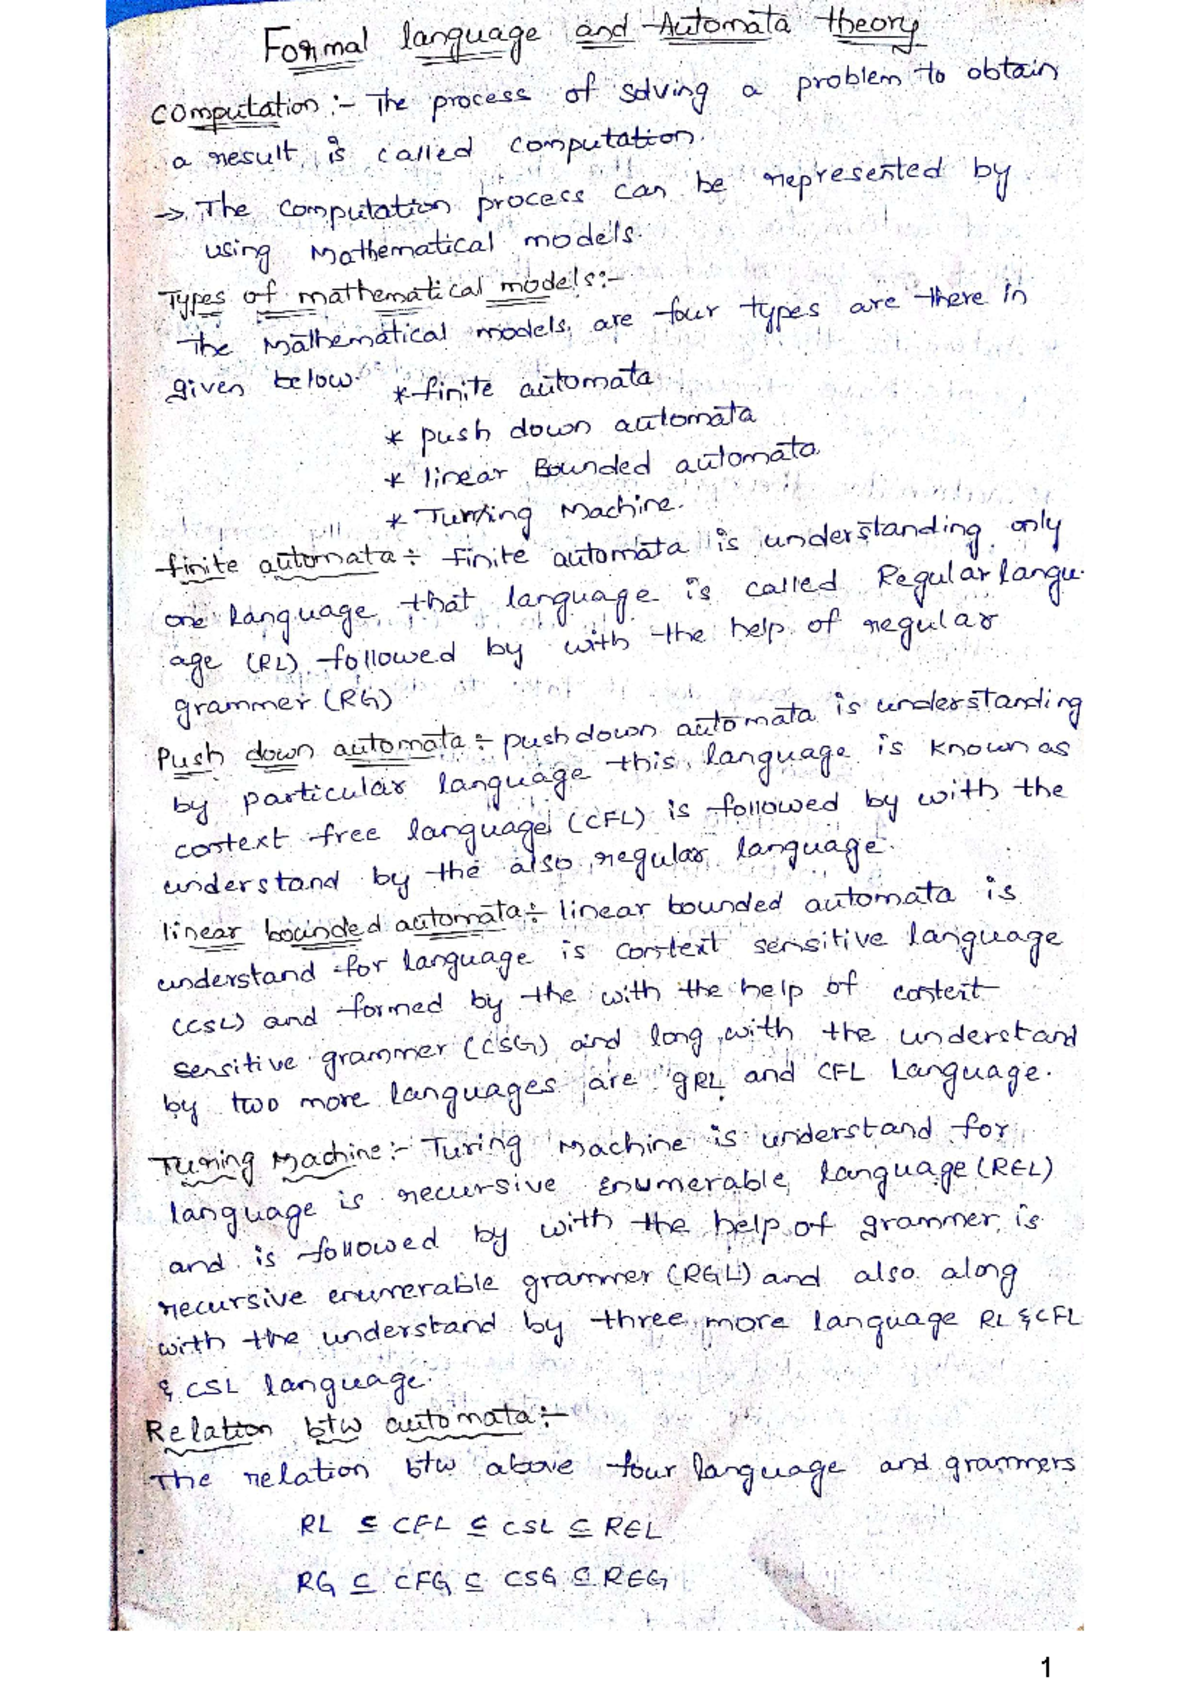 Formal language and Automata theory
computation :- The process of solving a problem to obtain
a result, is called computation.
-> The computation process can be represented by
using Mathematical models.
Types of mathematical models:-
The Mathematical models, are four types are there in
given below.
* finite automata
* push down automata
* linear Bounded automata.
* Turing Machine.
finite automata ÷ finite automata is understanding only
one language, that language is called Regular langu-
age (RL) followed by with the help of regular
grammer (RG)
Push down automata ÷ pushdown automata is understanding
by particular language this, language is known as
context free language (CFL) is followed by with the
understand by the also regular language.
linear bounded automata ÷ linear bounded automata is
understand for language is context sensitive language
(CSL) and formed by the with the help of context
sensitive grammer (CSG) and long with the understand
by two more languages are gRL and CFL Language.
Turing Machine :- Turing Machine is understand for
language is recursive enumerable language (REL)
and is followed by with the help of grammer is
recursive enumerable grammer (RGL) and also along
with the understand by three more language RL & CFL
& CSL language.
Relation btw automata :-
The relation btw above four language and grammers
RL ⊆ CFL ⊆ CSL ⊆ REL
RG ⊆ CFG ⊆ CSG ⊆ REG
1